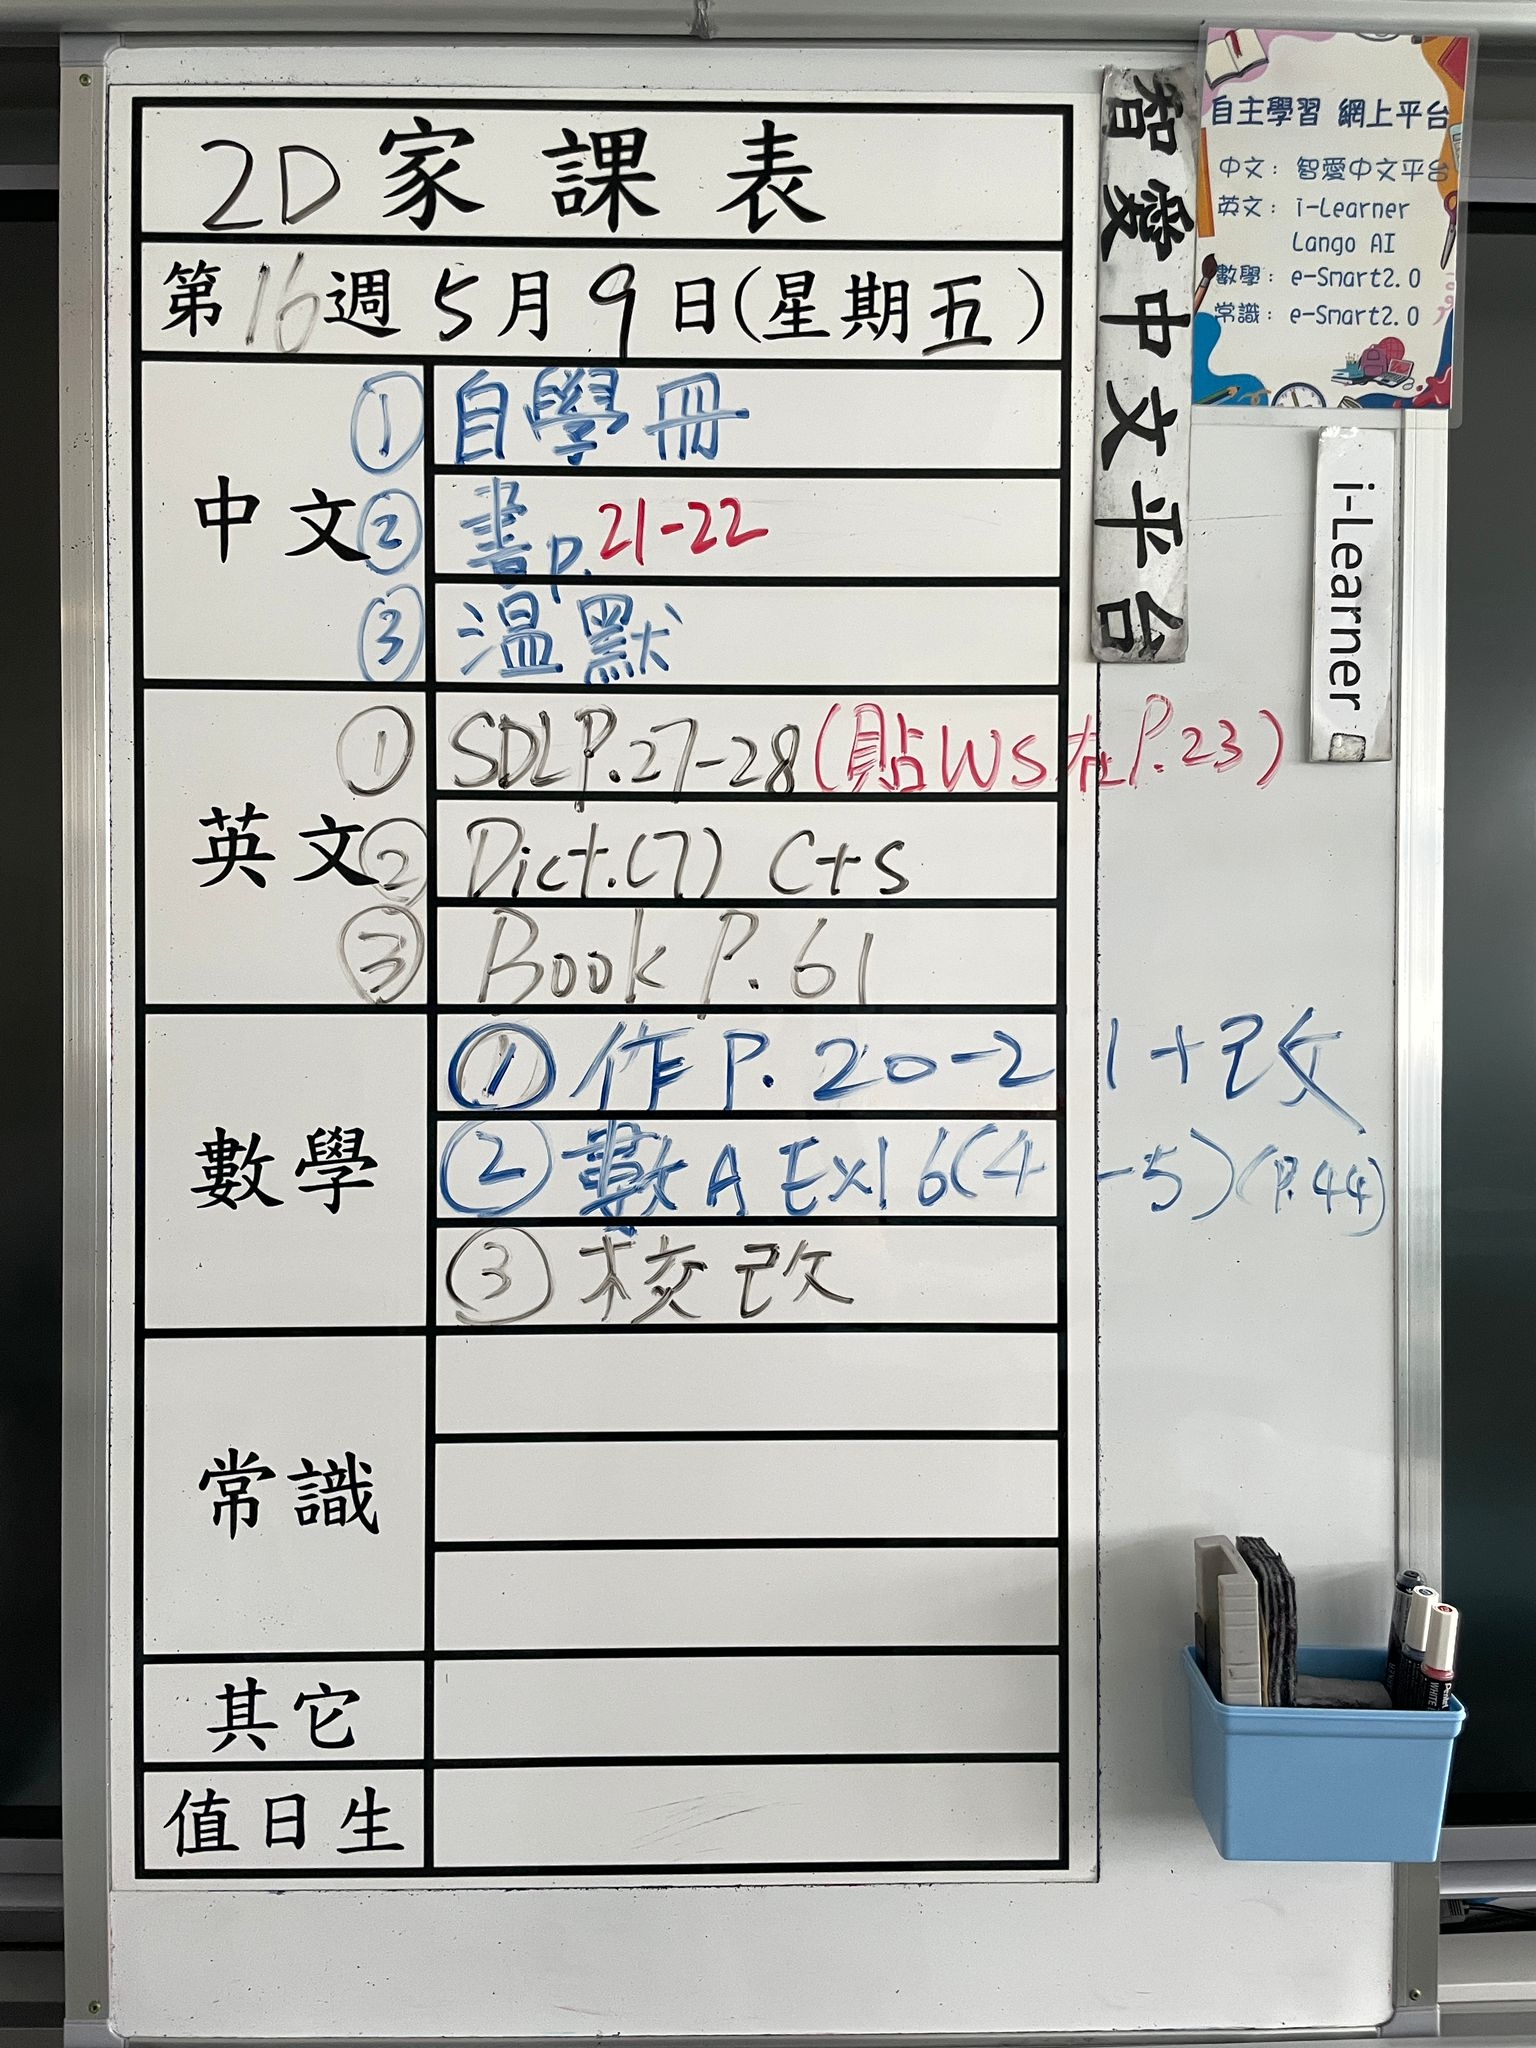 2D家課表
第16週5月9日(星期五)
中文
① 自學冊
② 書p.21-22
③ 溫默
英文
① SDL P.27-28(貼WS在P.23)
② Dict.(7) C+S
③ Book P.61
數學
① 作P.20-21+改
② 數A Ex16(4-5)(P.44)
③ 校改
常識
其它
值日生
智愛中文平台
自主學習 網上平台
中文：智愛中文平台
英文：i-Learner
Lango AI
數學：e-Smart2.0
常識：e-Smart2.0
i-Learner